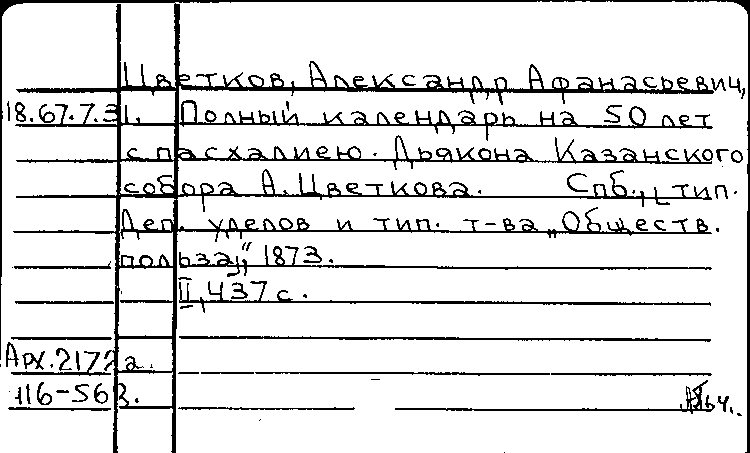 Цветков, Александр Афанасьевич,
18.67.7.31. Полный календарь на 50 лет
с пасхалиею. Дьякона Казанского
собора А. Цветкова. Спб., [тип.
Деп. уделов и тип. т-ва „Обществ.
польза]", 1873.
II, 437 с.
Арх. 2172а.
116-563.